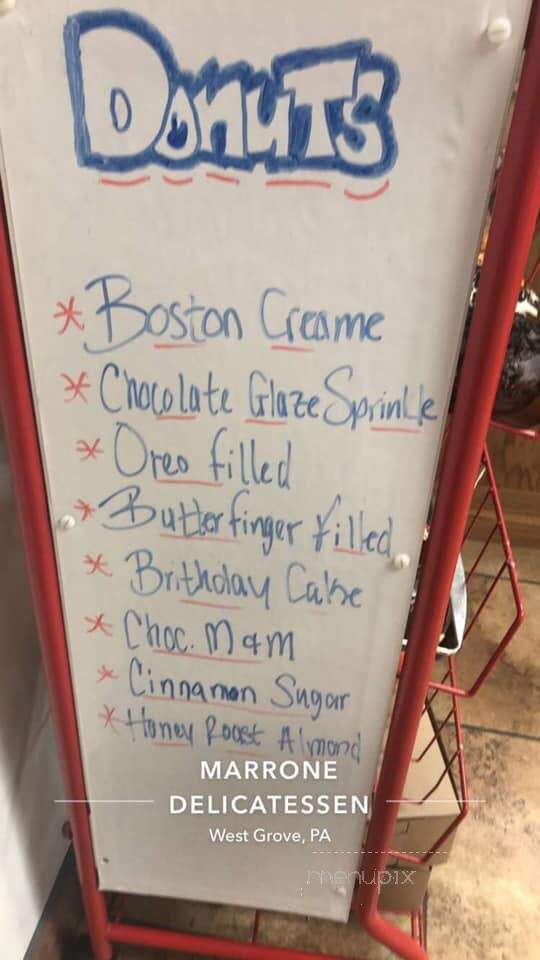 Donuts
* Boston Creame
* Chocolate Glaze Sprinkle
* Oreo filled
* Butterfinger filled
* Brithday Cake
* Choc. M & M
* Cinnamon Sugar
* Honey Roast Almond
MARRONE
DELICATESSEN
West Grove, PA
menupix